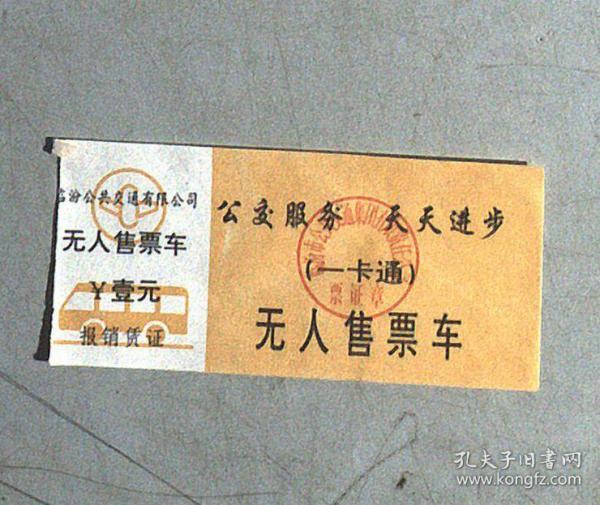 临汾公共交通有限公司
无人售票车
¥壹元
报销凭证
公交服务 天天进步
(一卡通)
票证章
无人售票车
孔夫子旧书网
www.kongfz.com